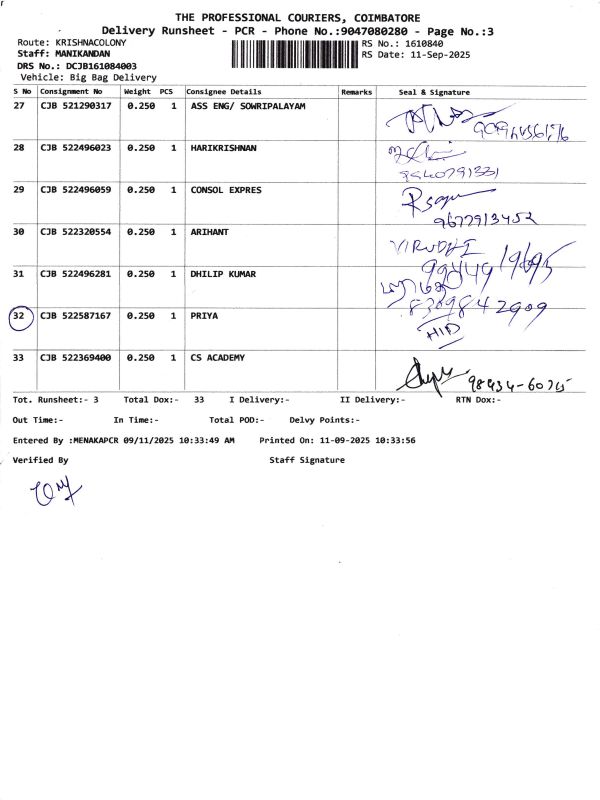 THE PROFESSIONAL COURIERS, COIMBATORE
Delivery Runsheet - PCR - Phone No.:9047080280 - Page No.:3
Route: KRISHNACOLONY
RS No.: 1610840
Staff: MANIKANDAN
RS Date: 11-Sep-2025
DRS No.: DCJB161084003
Vehicle: Big Bag Delivery
S No Consignment No Weight PCS Consignee Details Remarks Seal & Signature
27 CJB 521290317 0.250 1 ASS ENG/ SOWRIPALAYAM
28 CJB 522496023 0.250 1 HARIKRISHNAN
29 CJB 522496059 0.250 1 CONSOL EXPRES
9677913452
30 CJB 522320554 0.250 1 ARIHANT
31 CJB 522496281 0.250 1 DHILIP KUMAR
32 CJB 522587167 0.250 1 PRIYA
8309842909
33 CJB 522369400 0.250 1 CS ACADEMY
Tot. Runsheet:- 3 Total Dox:- 33 I Delivery:- II Delivery:- RTN Dox:-
Out Time:- In Time:- Total POD:- Delvy Points:-
Entered By :MENAKAPCR 09/11/2025 10:33:49 AM Printed On: 11-09-2025 10:33:56
Verified By Staff Signature